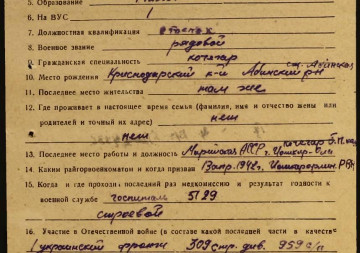 5. Образование
6. На ВУС 1
7. Должностная квалификация
8. Военное звание рядовой
9. Гражданская специальность кочегар ст. Абинская
10. Место рождения Краснодарский к-й Абинский р-н
11. Последнее место жительства там же
12. Где проживает в настоящее время семья (фамилия, имя и отчество жены или
родителей и точный их адрес) нет
нет
13. Последнее место работы и должность Марийская АССР г. Йошкар-Ола кочегар
14. Каким райгорвоенкоматом и когда призван 1942 г. РВК
15. Когда и где проходил последний раз медкомиссию и результат годности к
военной службе госпиталь 5129
строевой
16. Участие в Отечественной войне (в составе какой последней части в качестве
1 украинский фронт 309 стр. див. 959 с/п